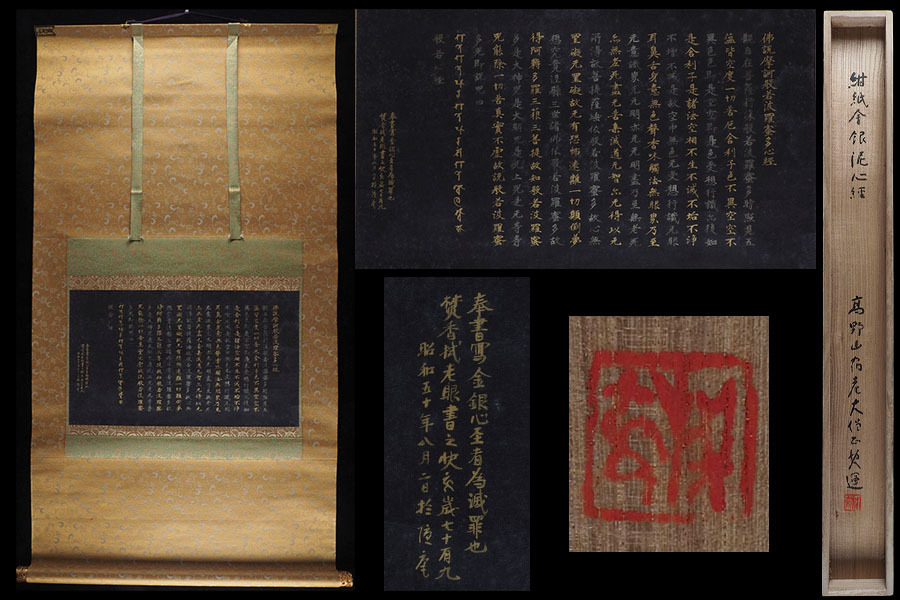 佛説摩訶般若波羅蜜多心經
觀自在菩薩行深般若波羅蜜多時照見五
蘊皆空度一切苦厄舍利子色不異空空不
異色色即是空空即是色受想行識亦復如
是舍利子是諸法空相不生不滅不垢不淨
不增不減是故空中無色无受想行識无眼
耳鼻舌身意無色聲香味觸法無眼界乃至
无意識界无无明亦无无明盡乃至無老死
亦無老死盡无苦集滅道无智亦无得以无
所得故菩提薩埵依般若波羅蜜多故心無
罣礙无罣礙故无有恐怖遠離一切顛倒夢
想究竟涅槃三世諸佛依般若波羅蜜多故
得阿耨多羅三藐三菩提故知般若波羅蜜
多是大神咒是大明咒是无上咒是无等等
咒能除一切苦真實不虚故説般若波羅蜜
多咒即説咒曰
般若心經
奉書寫金銀心至者為滅罪也
焚香拭老眼書之 歳七十有九
昭和五十年八月二日於
紺紙金銀泥心經
高野山宿老大僧正